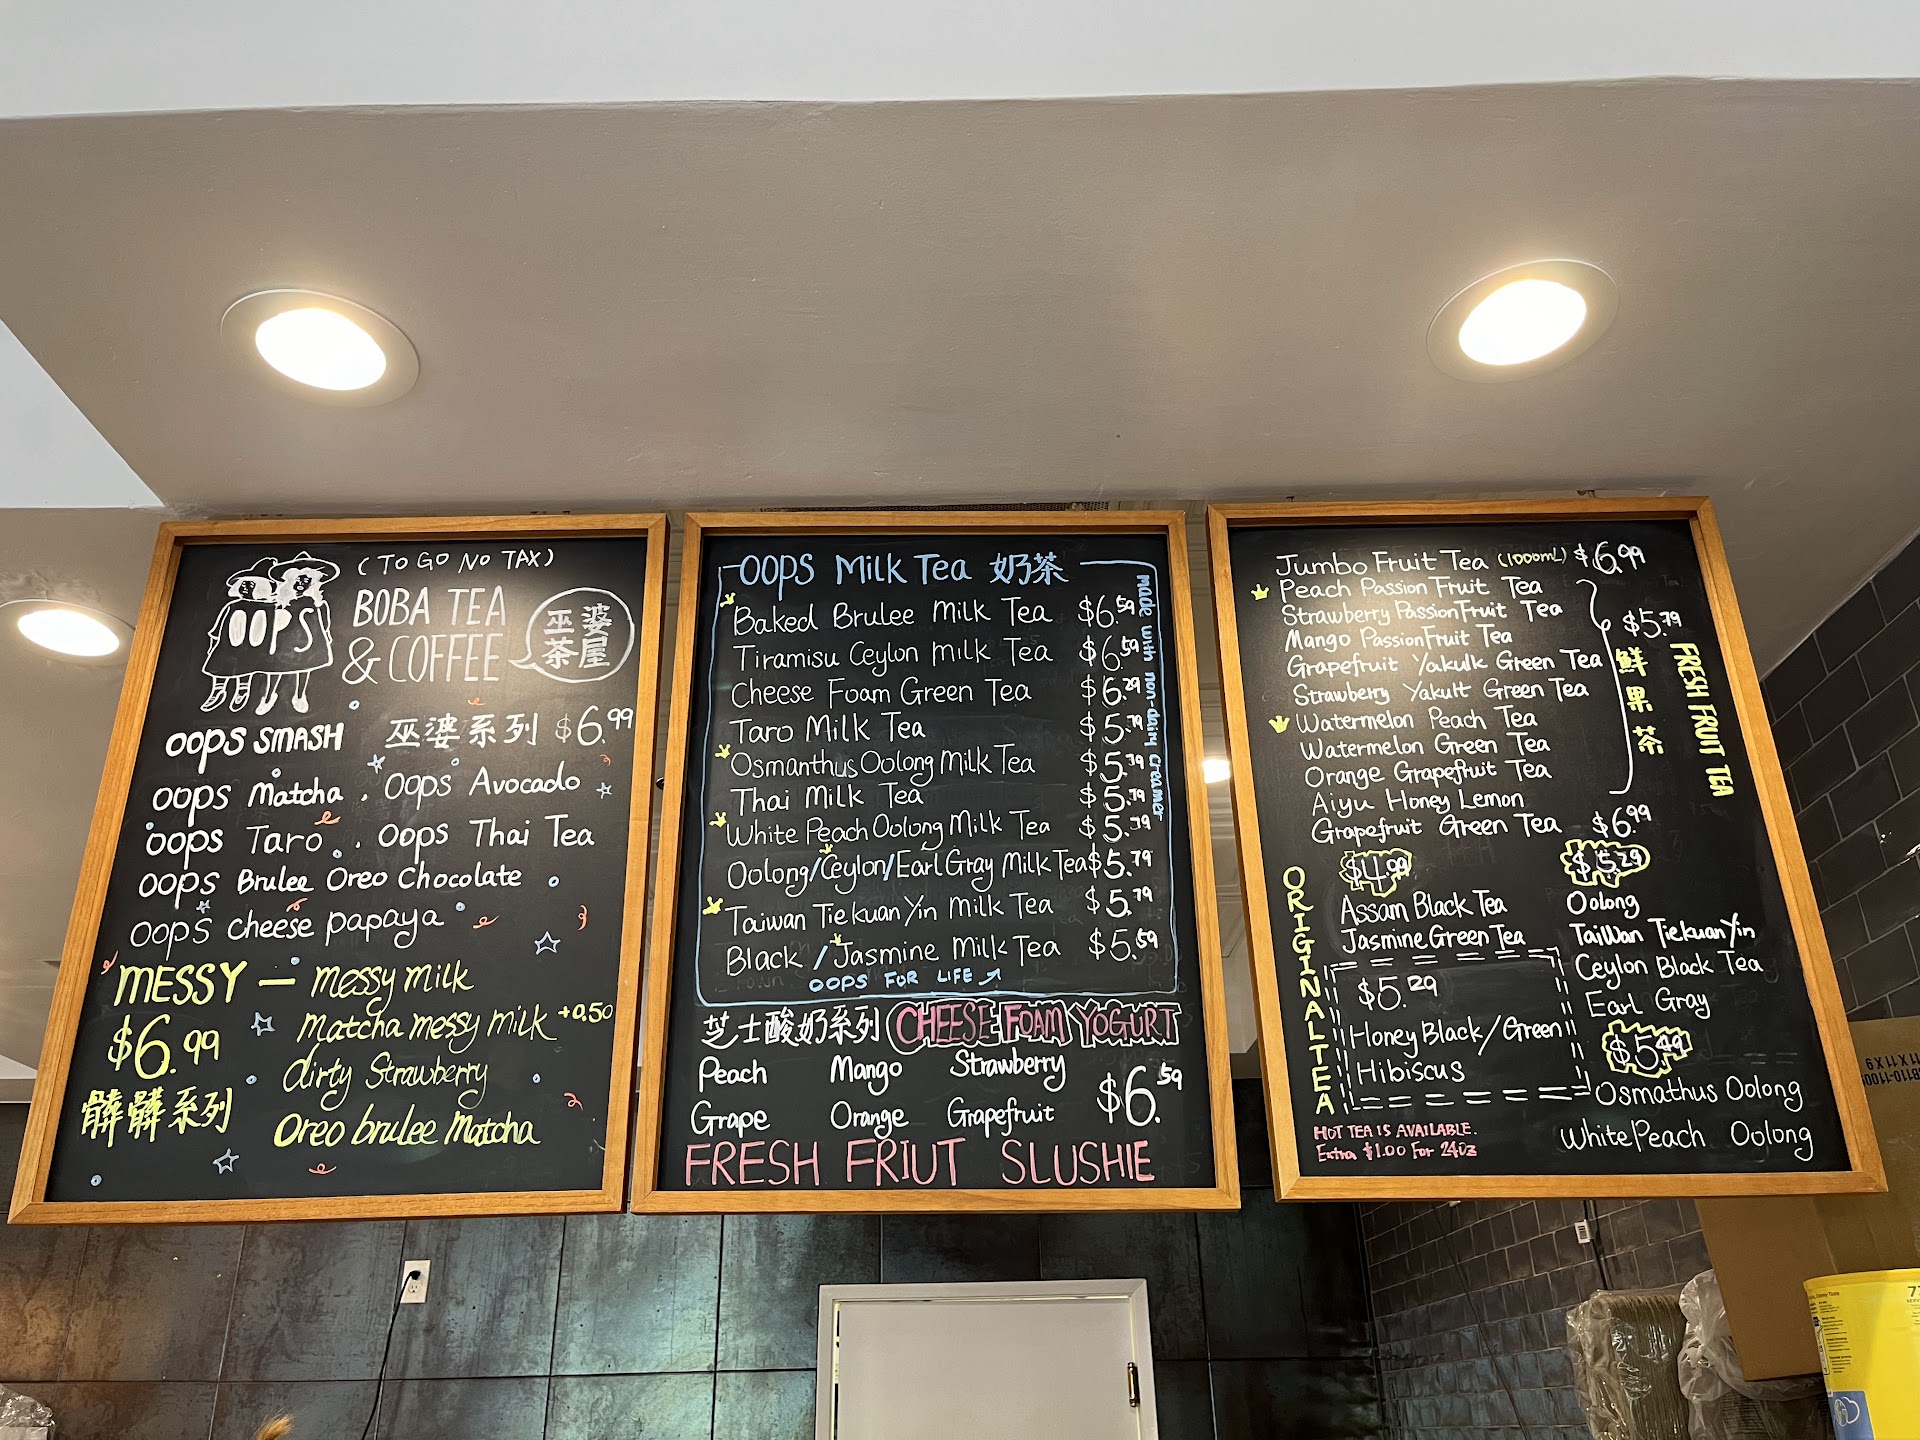 (TO GO NO TAX)
OOPS
BOBA TEA
& COFFEE
巫婆
茶屋
OOPS SMASH 巫婆系列 $6.99
OOPS Matcha . OOPS Avocado
OOPS Taro . OOPS Thai Tea
OOPS Brulee Oreo Chocolate
OOPS cheese papaya
MESSY — messy milk
$6.99
髒髒系列
Matcha messy milk +0.50
dirty Strawberry
Oreo brulee Matcha
OOPS Milk Tea 奶茶
Baked Brulee Milk Tea $6.59
Tiramisu Ceylon Milk Tea $6.59
Cheese Foam Green Tea $6.29
Taro Milk Tea $5.79
Osmanthus Oolong Milk Tea $5.79
Thai Milk Tea $5.79
White Peach Oolong Milk Tea $5.79
Oolong/Ceylon/Earl Gray Milk Tea $5.79
Taiwan Tiekuan Yin Milk Tea $5.79
Black / Jasmine Milk Tea $5.59
OOPS FOR LIFE
made with non-dairy creamer
芝士酸奶系列 CHEESE FOAM YOGURT
Peach Mango Strawberry
Grape Orange Grapefruit $6.59
FRESH FRIUT SLUSHIE
Jumbo Fruit Tea (1000mL) $6.99
Peach Passion Fruit Tea
Strawberry Passion Fruit Tea
Mango Passion Fruit Tea
Grapefruit Yakulk Green Tea
Strawberry Yakult Green Tea
Watermelon Peach Tea
Watermelon Green Tea
Orange Grapefruit Tea
Aiyu Honey Lemon
$5.79
鮮果茶
FRESH FRUIT TEA
Grapefruit Green Tea $6.99
ORIGINAL TEA
$4.99
Assam Black Tea
Jasmine Green Tea
$5.29
Honey Black/Green
Hibiscus
$5.29
Oolong
TaiWan TieKuanYin
Ceylon Black Tea
Earl Gray
$5.49
Osmathus Oolong
White Peach Oolong
HOT TEA IS AVAILABLE.
Extra $1.00 For 24oz